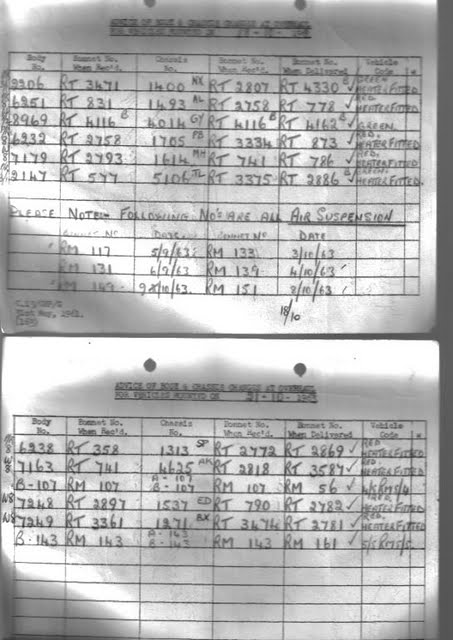 ADVICE OF BODY & CHASSIS CHANGES AT OVERHAUL
FOR VEHICLES MOUNTED ON
Body No. Bonnet No. When Rec'd. Chassis No. Bonnet No. When Rec'd. Bonnet No. When Delivered Vehicle Code *
9206 RT 3471 1400 NX RT 2807 RT 4330 B ✓ GREEN. HEATER FITTED
6251 RT 831 1493 AL RT 2758 RT 778 ✓ RED. HEATER FITTED.
8969 RT 4116 B 4014 GY RT 4116 B RT 4162 B ✓ GREEN.
6932 RT 2758 1705 PB RT 3334 RT 873 ✓ RED. HEATER FITTED.
7179 RT 2793 1614 MH RT 741 RT 786 ✓ RED. HEATER FITTED.
2147 RT 577 5106 TL RT 3375 RT 2886 B ✓ GREEN. HEATER FITTED.
PLEASE NOTE:- FOLLOWING NO'S ARE ALL AIR SUSPENSION
BONNET NO DATE. BONNET NO DATE
RM 117 5/9/63 RM 133 3/10/63
RM 131 6/9/63 RM 139 4/10/63
RM 149 /10/63 RM 151 8/10/63
18/10
31st May, 1961.
(163)
ADVICE OF BODY & CHASSIS CHANGES AT OVERHAUL
FOR VEHICLES MOUNTED ON 21-10-1963
Body No. Bonnet No. When Rec'd. Chassis No. Bonnet No. When Rec'd. Bonnet No. When Delivered Vehicle Code *
6938 RT 358 1313 SP RT 2772 RT 2869 ✓ RED HEATER FITTED
7163 RT 741 4625 RT 2818 RT 3587 ✓ RED. HEATER FITTED
B-107 RM 107 A-107 B-107 RM 107 RM 56 ✓
7248 RT 2897 1537 ED RT 790 RT 2782 ✓ RED. HEATER FITTED
7249 RT 3361 1271 BX RT 3474 RT 2781 ✓ RED. HEATER FITTED
B-143 RM 143 A-143 B-143 RM 143 RM 161 ✓